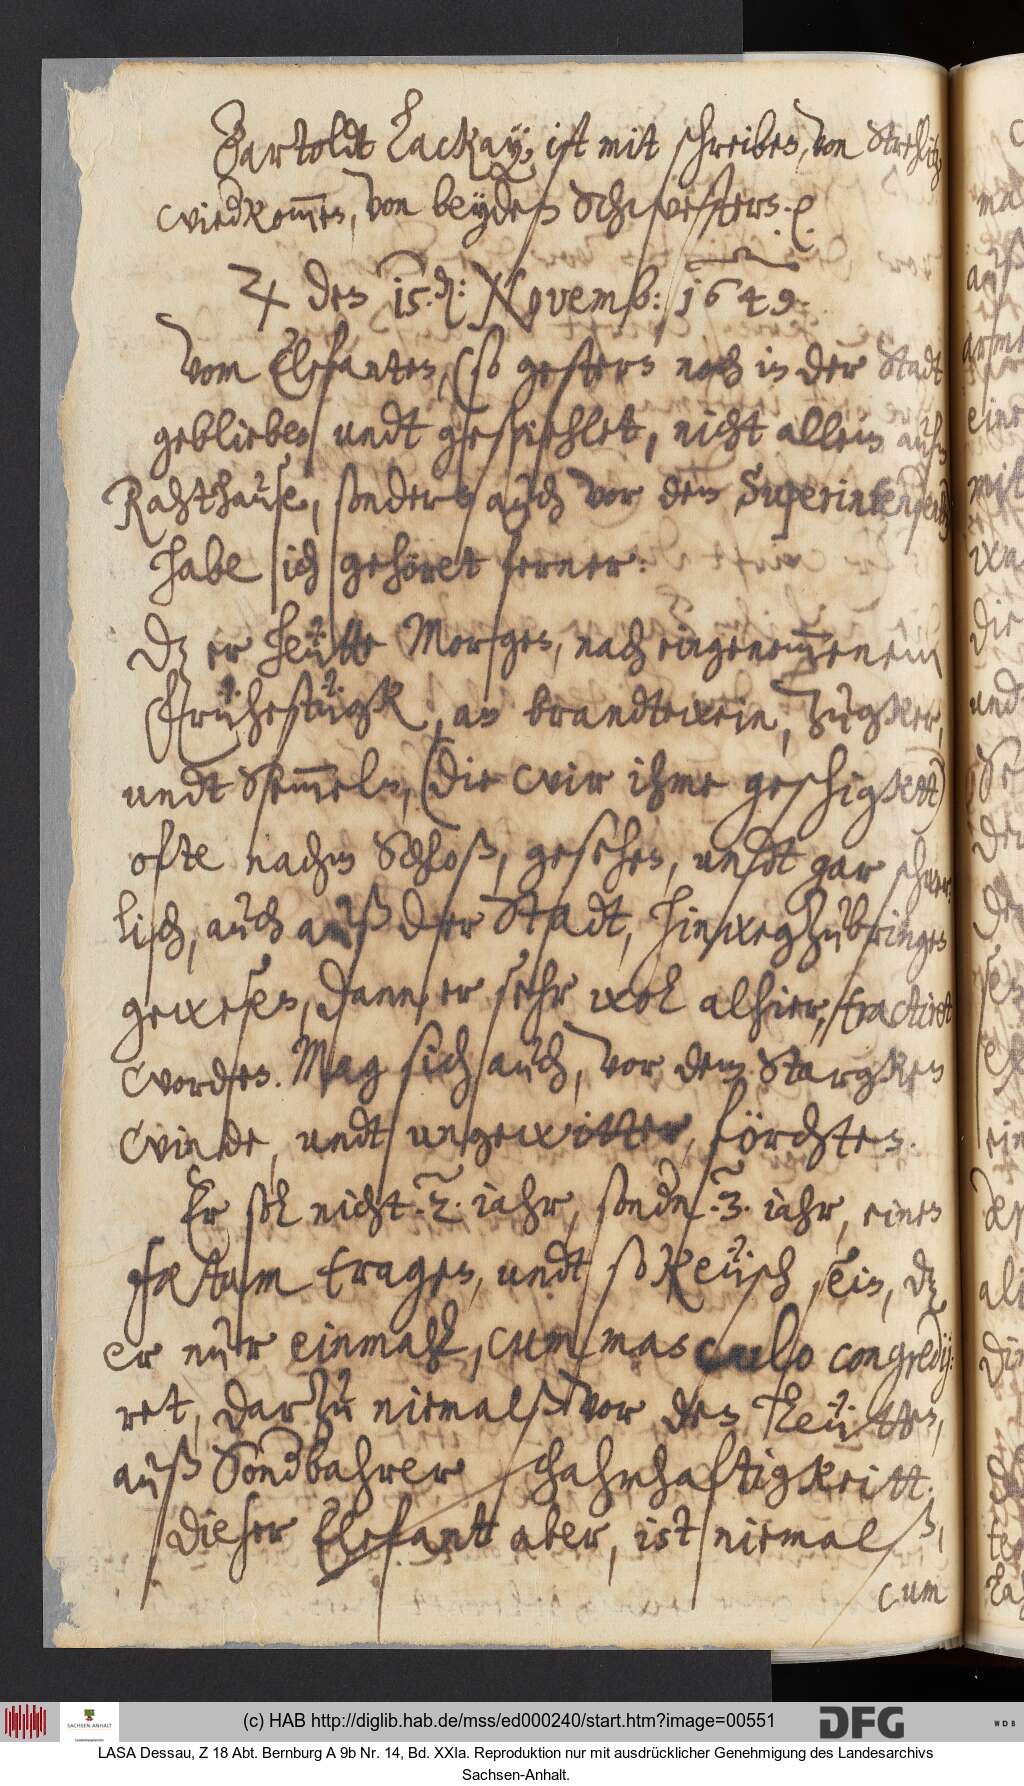 Bartoldt Lackay, ist mit schreiben, von Strehlitz,
wiedkom̅en, von beyden Schwestern. p
♃ den 15.d: Novemb: 1649.
Vom Elefanten, (so gestern noch in der Stadt
geblieben undt gespiehlet, nicht allein aufm
Rahthause, sondern auch vor dem Superintendenten
habe ich gehöret ferner:
Dz er heütte Morgen, nach eingenom̅enem
Frühestügk, an brandtwein, Zügker,
undt Sem̅eln, (die wir ihme geschigktt)
ofte nachm Schloß, gesehen, undt gar schwer-
lich, auch auß der Stadt, hinwegzubringen
gewesen, dann er sehr wol alhier, tractiret
worden. Mag sich auch, vor dem Stargken
winde, undt ungewitter, förchten.
Er sol nicht .2. iahr, sondn .3. iahr, einen
foetum tragen, undt so keüsch sein, dz
er nur einmahl, cum masculo congredij:
ret, darzu niemalß vor den Leütten,
auß Sondbahrer schahmhaftigkeitt.
Dieser Elefantt aber, ist niemalß,
cum
(c) HAB http://diglib.hab.de/mss/ed000240/start.htm?image=00551
SACHSEN-ANHALT
DFG
WDB
LASA Dessau, Z 18 Abt. Bernburg A 9b Nr. 14, Bd. XXIa. Reproduktion nur mit ausdrücklicher Genehmigung des Landesarchivs
Sachsen-Anhalt.